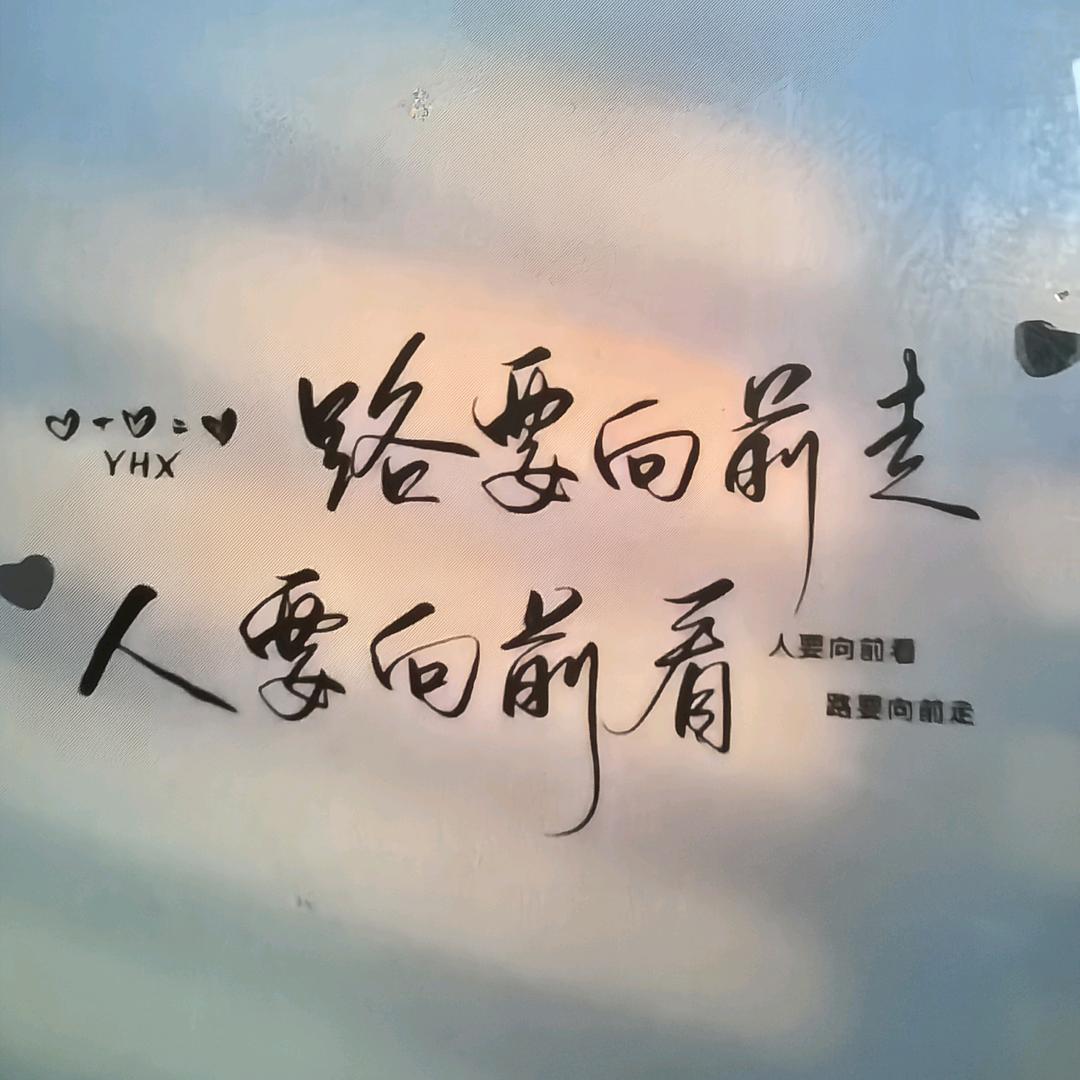 路要向前走
YHX
人要向前看
人要向前看
路要向前走